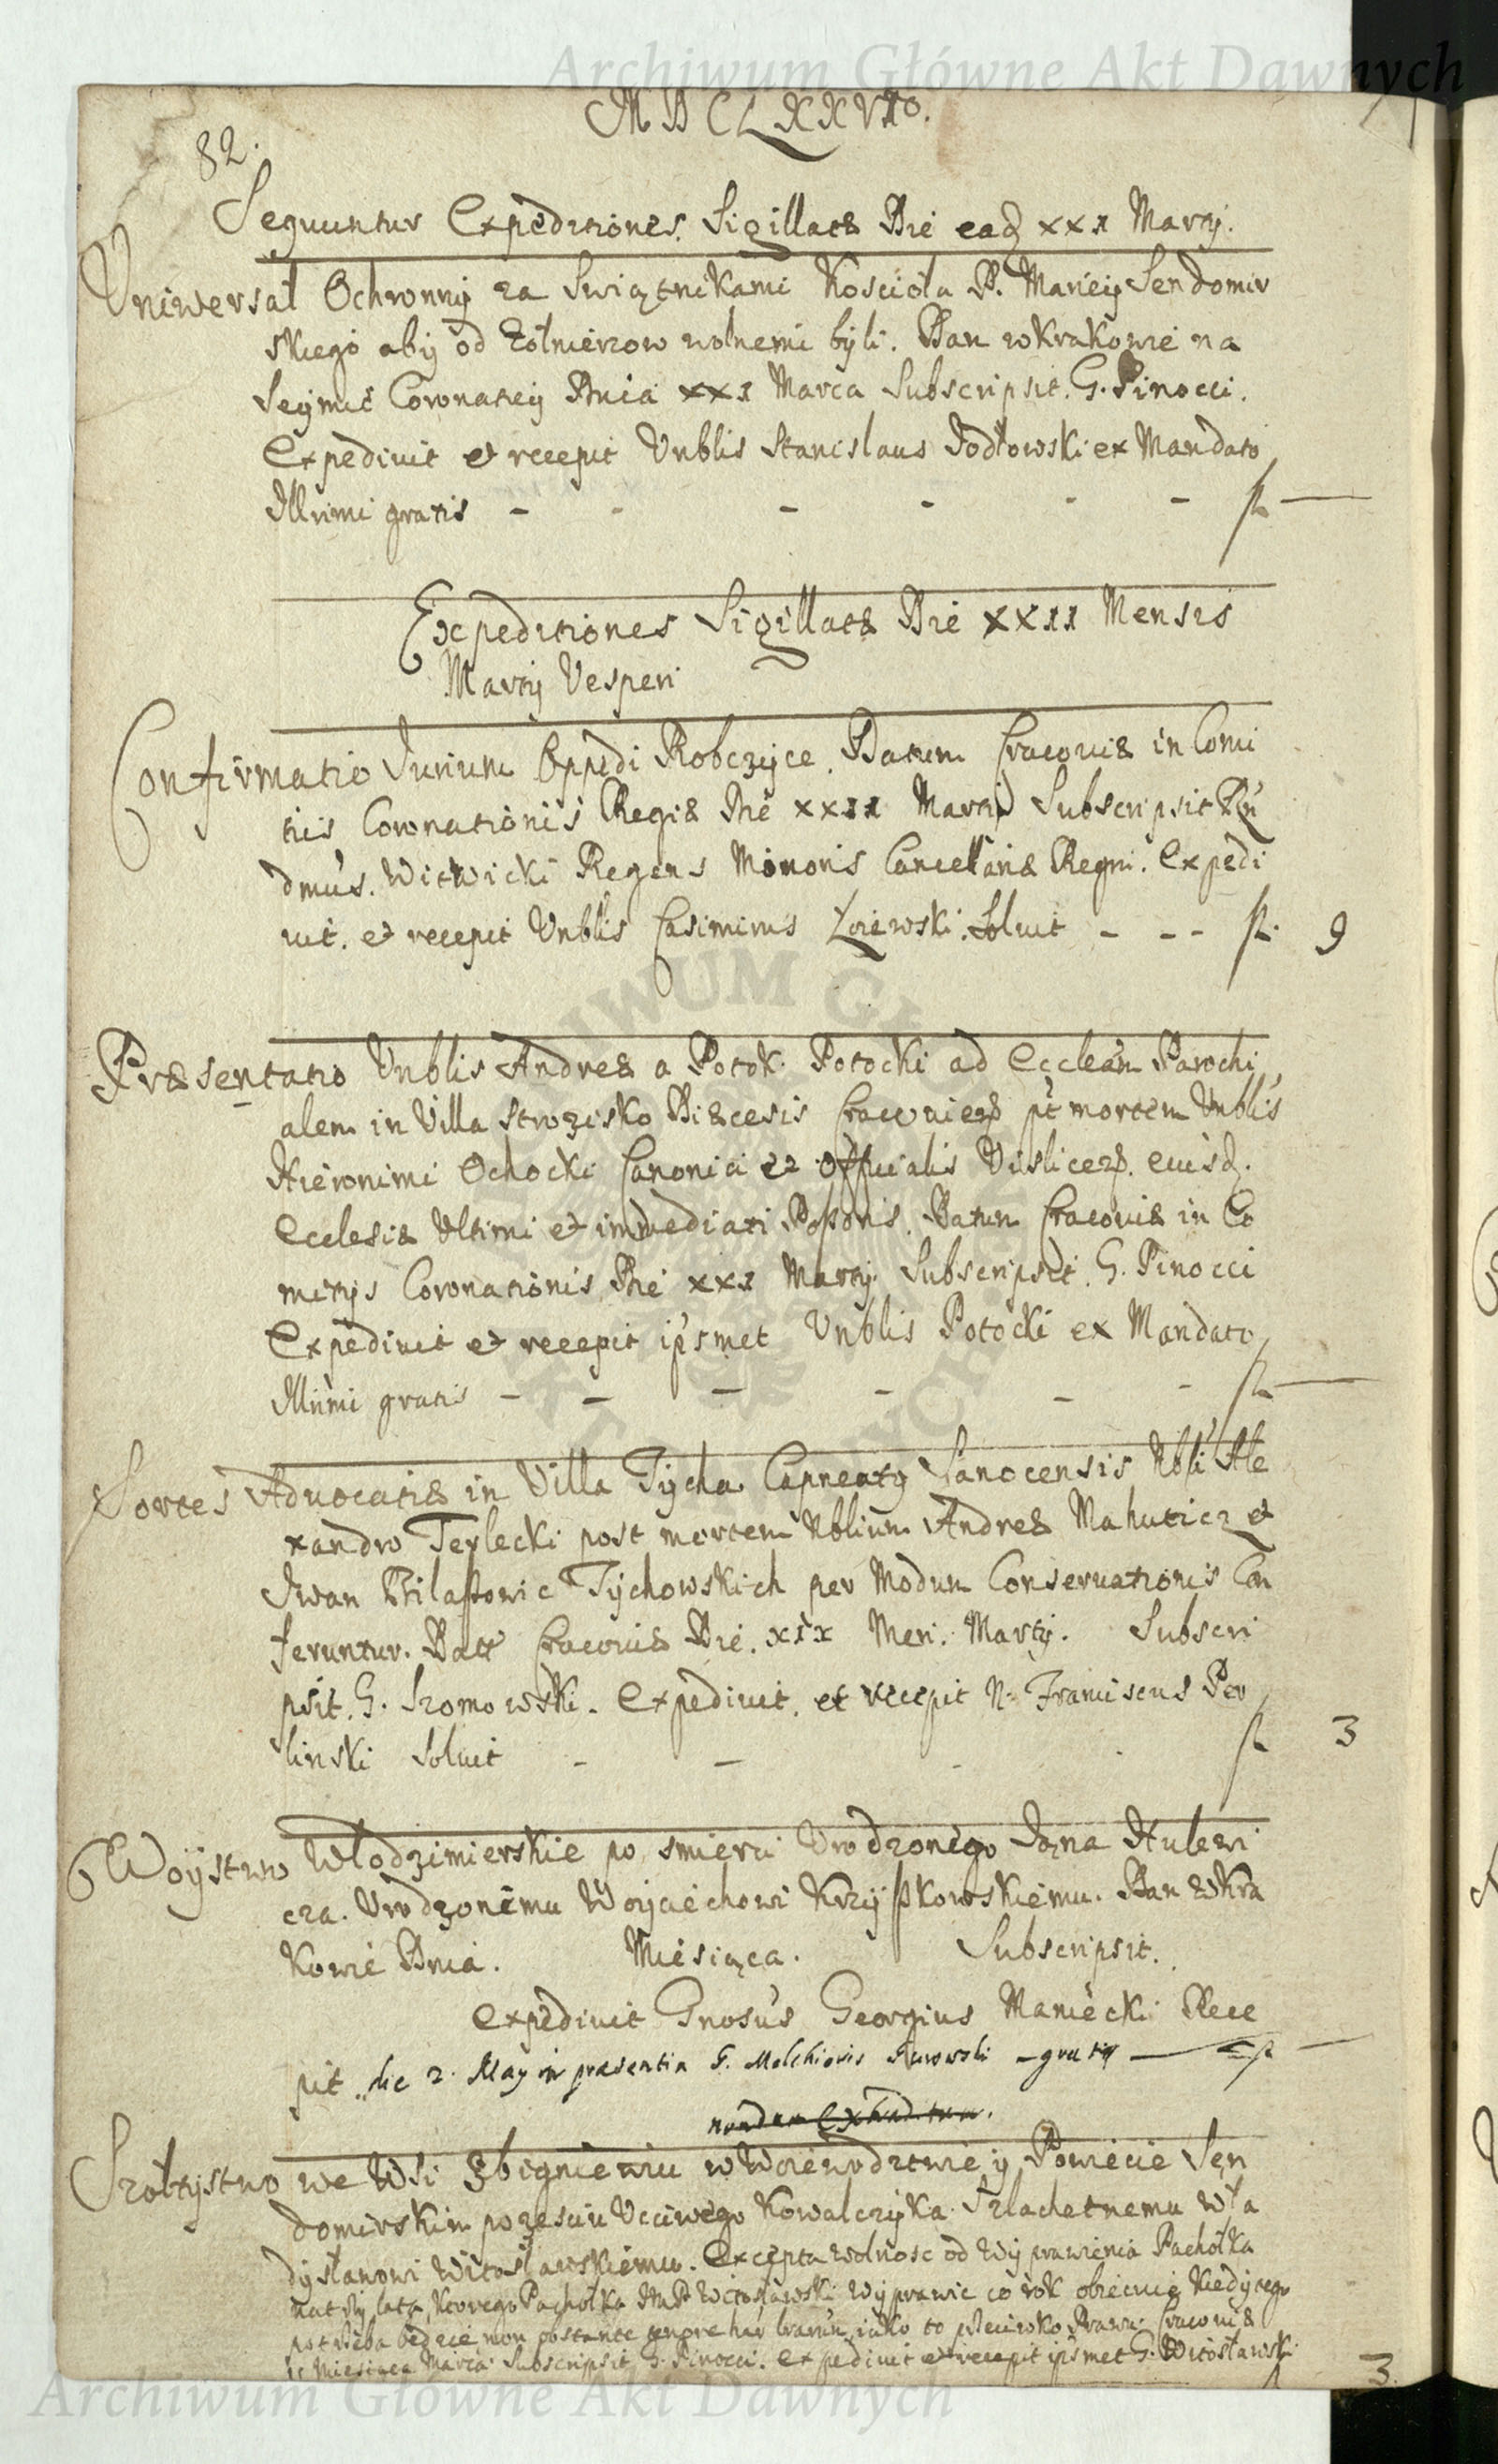 Archiwum Główne Akt Dawnych
MDCLXXVIto.
82.
Sequuntur Expeditiones Sigillatæ Die eadꝫ xx1 Martij.
Vniwersał Ochronnij za Swiątnikami Kosciola P. Mariey Sendomir
skiego abij od Zolnierzow wolnemi byli. Dan w Krakowie na
Seymie Coronatiey Dnia xx1 Marca Subscripsit. G. Pinocci.
Expediuit et recepit Vnblis Stanislaus Jodłowski ex Mandato
Illrimi gratis - - - - - - fl —
Expeditiones Sigillatæ Die xx11 Mensis
Martij Vesperi
Confirmatio Jurium Oppidi Robczyce. Datum Cracouiæ in Comi
tiis Coronationis Regiæ Die xx11 Martij Subscripsit Rñ
dmus. Witwicki Regens Minoris Cancellariæ Regni. Expedi
uit. et recepit Vnblis Casimirus Soluit - - - fl. 9
Præsentatio Vnblis Andreæ a Potok Potocki ad Eccleãm Parochi
alem in Villa Strozisko Diæcesis Cracouien̄ pt mortem Vnblis
Hieronimi Ochocki Canonici et Officialis Vislicen̄. eiusdꝫ.
Ecclesiæ Vltimi et immediati Poss̃oris. Datum Cracouiæ in Co
mitijs Coronationis Die xx1 Martij. Subscripsit. G. Pinocci
Expediuit et recepit ipsmet Vnblis Potocki ex Mandato
Illrimi gratis - - - - - - fl —
Sortes Aduocatiæ in Villa Tycha Capneatq Sanocensis Nbli Ale
xandro Terlecki post mortem Nblium Andreæ Mahuticz et
Iwan Tychowskich per Modum Conseruationis Con
feruntur. Datt Cracouiæ Die. x1x Men. Martij. Subscri
psit. G. Szomowski. Expediuit. et recepit N. Franciscus Ber
linski Soluit - - - - fl 3
Woijstwo Włodzimierskie po smierci Vrodzonego Jana Hulewi
cza. Vrodzonemu Woyciechowi Krzyszkowskiemu. Dan w Kra
kowie Dnia. Miesiąca. Subscripsit.
Expediuit Gnosus Georgius Maniecki Rece
pit die 2. May in præsentia G. Melchioris Gurowski - gratis — fl —
nondum Extradita.
Szołtystwo we Wsi Zbigniewiu w Woiewodztwie ij Powiecie Sen
domirskim po zesciu Vcciwego Kowalczyka Szlachetnemu Wła
dysławowi Witosławskiemu. Excepta wolnosc od Wyprawienia Pachołka
na trzy lata, ktorego Pachołka JMP Witosławski Wyprawic co rok obiecuie kiedy tego
potrzeba będzie non obstante Cracouiæ
Miesiąca Marca Subscripsit G. Pinocci. Expediuit et recepit ipsmet G. Witosławski
fl 3
Archiwum Główne Akt Dawnych